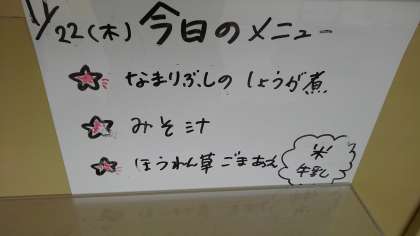 11/22(木) 今日のメニュー
なまりぶしの しょうが煮
みそ汁
ほうれん草 ごまあえ
米
牛乳